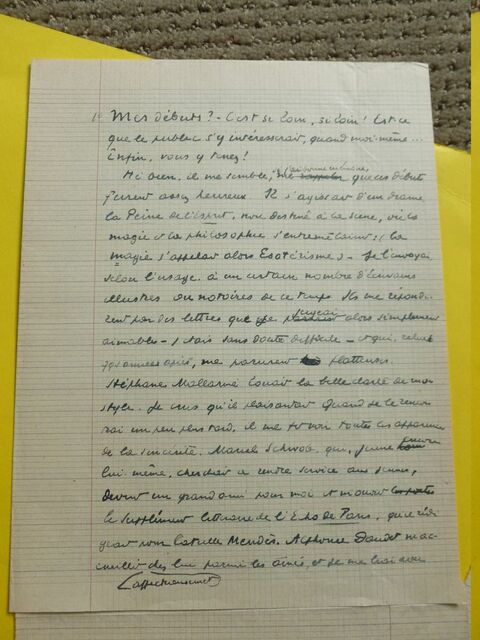 1º Mes débuts? - C'est si loin, si loin! Est-ce
que le public s'y intéresserait, quand moi-même...
Enfin, vous y tenez!
Eh bien, il me semble, que ces débuts
furent assez heureux. Il s'agissait d'un drame
la Peine de l'Esprit, non destiné à la scène, où la
magie et la philosophie s'entremêlaient; (la
magie s'appelait alors Esotérisme) - Je l'envoyai
selon l'usage, à un certain nombre d'écrivains
illustres ou notoires de ce temps. Ils me répondi-
rent par des lettres que je jugeai alors simplement
aimables - j'étais sans doute difficile - et qui, relues
années après, me parurent flatteuses.
Stéphane Mallarmé louait la belle clarté de mon
style. Je crus qu'il plaisantait. Quand je le rencon-
trai un peu plus tard, il me avoir toutes les apparences
de la sincérité. Marcel Schwob, qui, jeune encore
lui-même, cherchait à rendre service aux jeunes,
devint un grand ami pour moi et m'ouvrit
le supplément littéraire de l'Echo de Paris, qu'il rédi-
geait pour Catulle Mendès. Alphonse Daudet m'ac-
cueillit dès lors parmi les aînés, et je me liai avec
(affectueusement